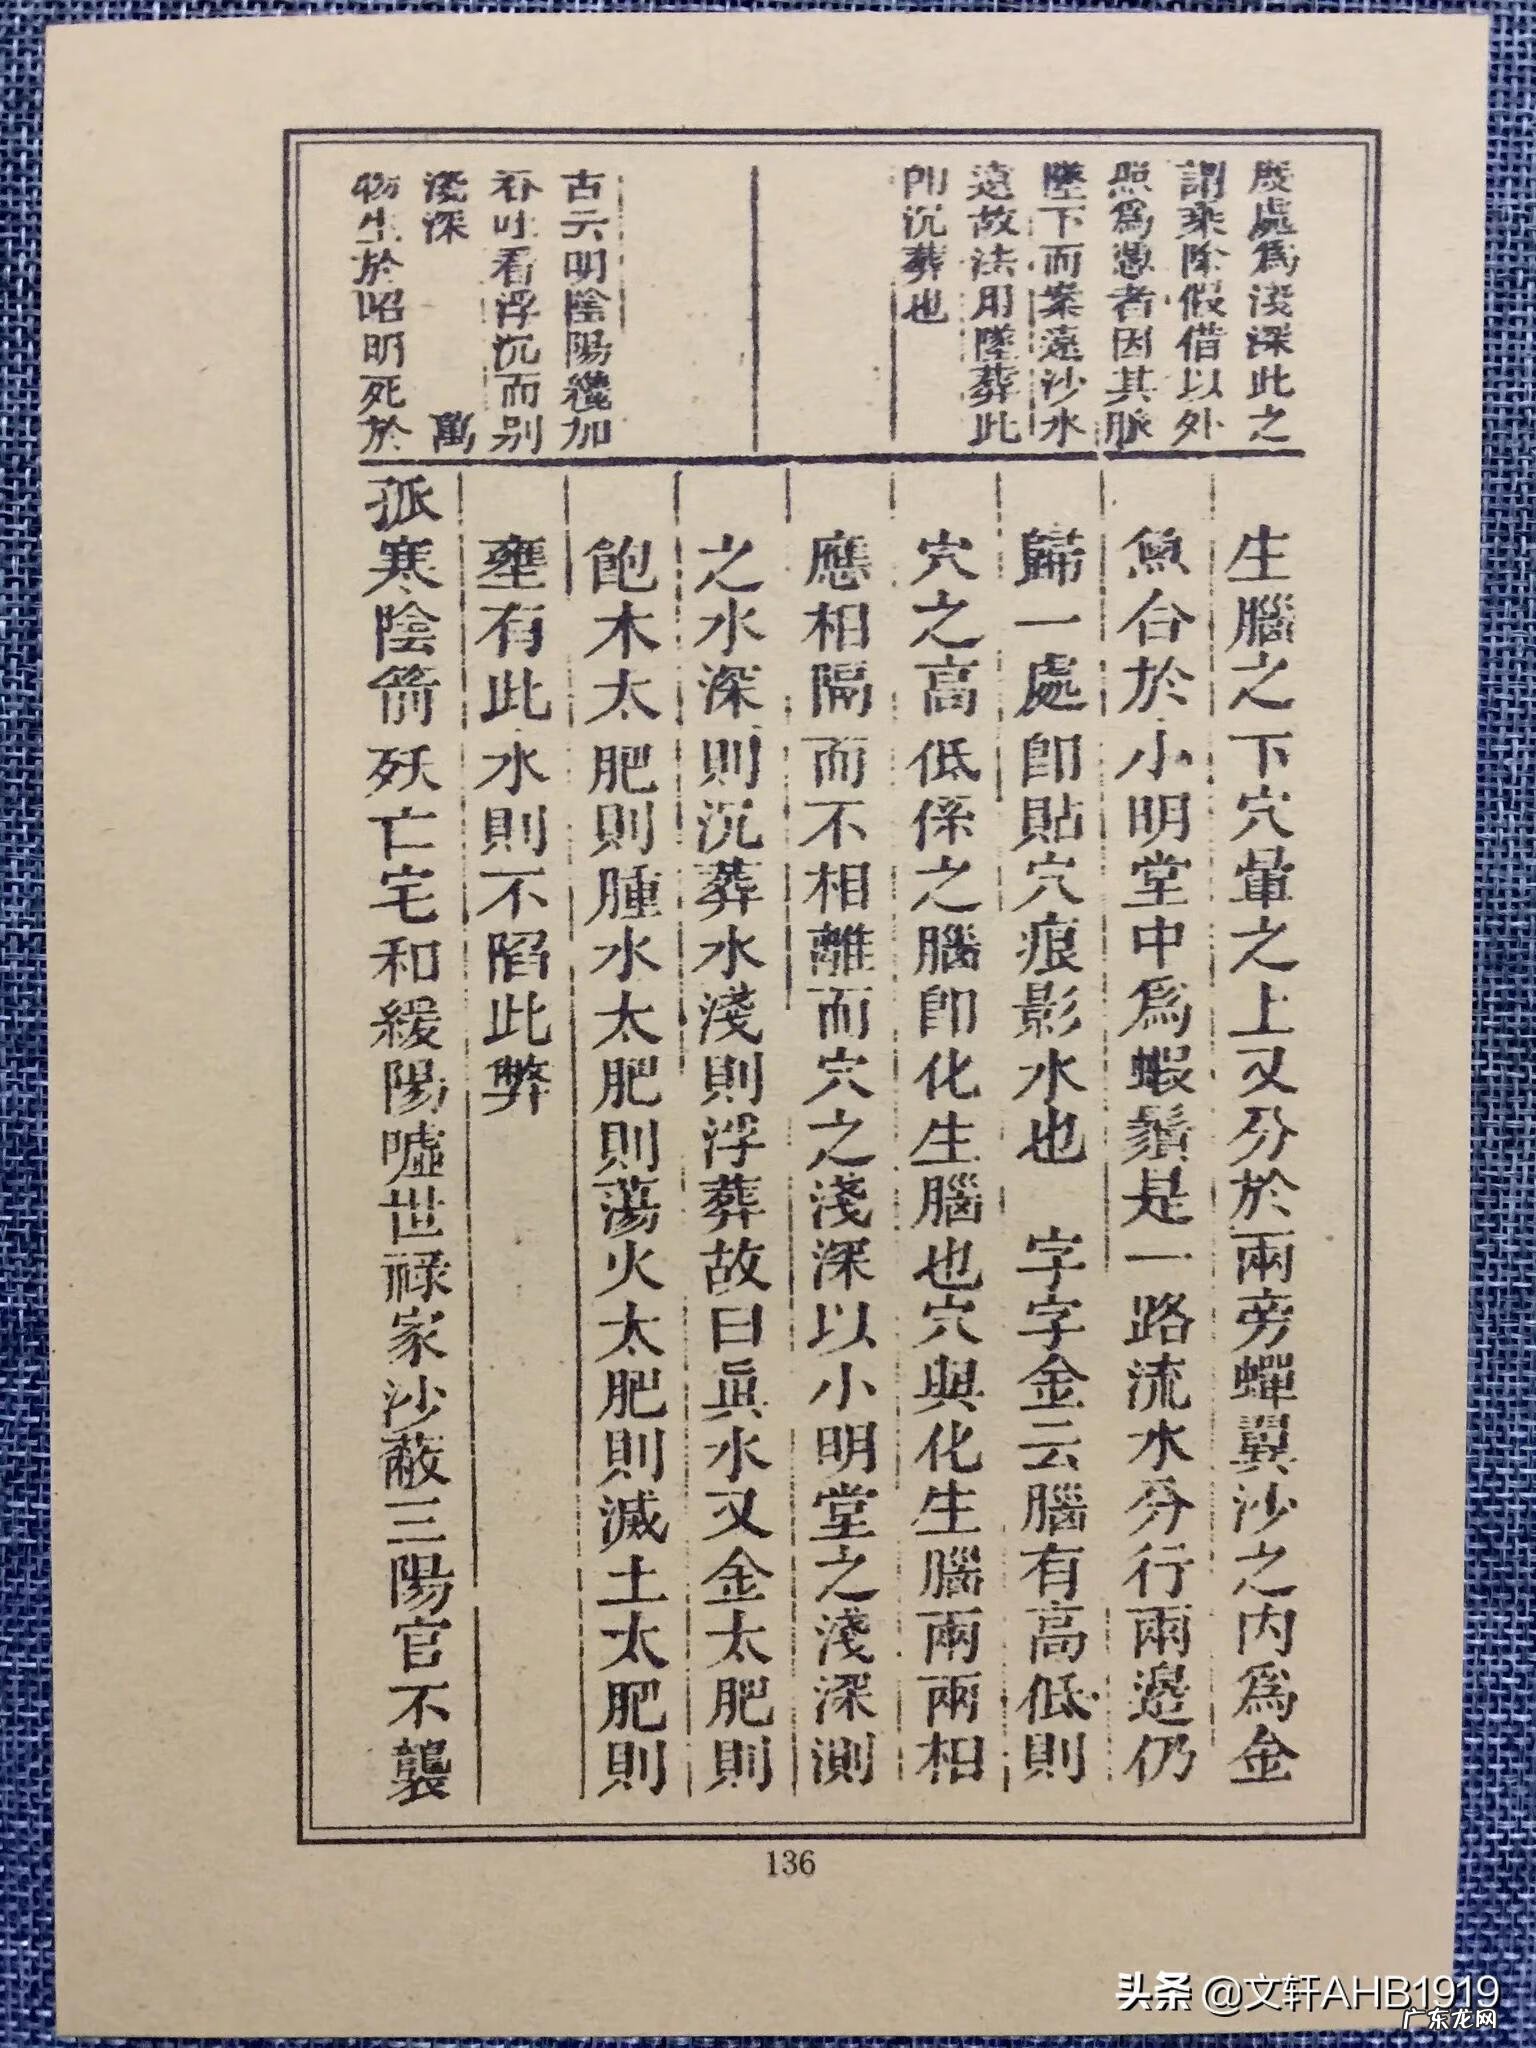 處為淺深此之
謂乘除假借以外
照為憑者因其脈
墜下而案遠沙水
遠故法用墜葬此
即沉葬也
古云明陰陽纔加
吞吐看浮沉而别
淺深　萬
物生於昭明死於
生腦之下穴暈之上又分於兩旁蟬翼沙之内為金
魚合於小明堂中為蝦鬚是一路流水分行兩邊仍
歸一處即貼穴痕影水也　字字金云腦有高低則
穴之高低係之腦即化生腦也穴與化生腦兩兩相
應相隔而不相離而穴之淺深以小明堂之淺深測
之水深則沉葬水淺則浮葬故曰眞水又金太肥則
飽木太肥則腫水太肥則蕩火太肥則滅土太肥則
壅有此水則不陷此弊
孤寒陰箭殀亡宅和緩陽噓世禄家沙蔽三陽官不襲
136
头条 @文轩AHB1919
广东龙网